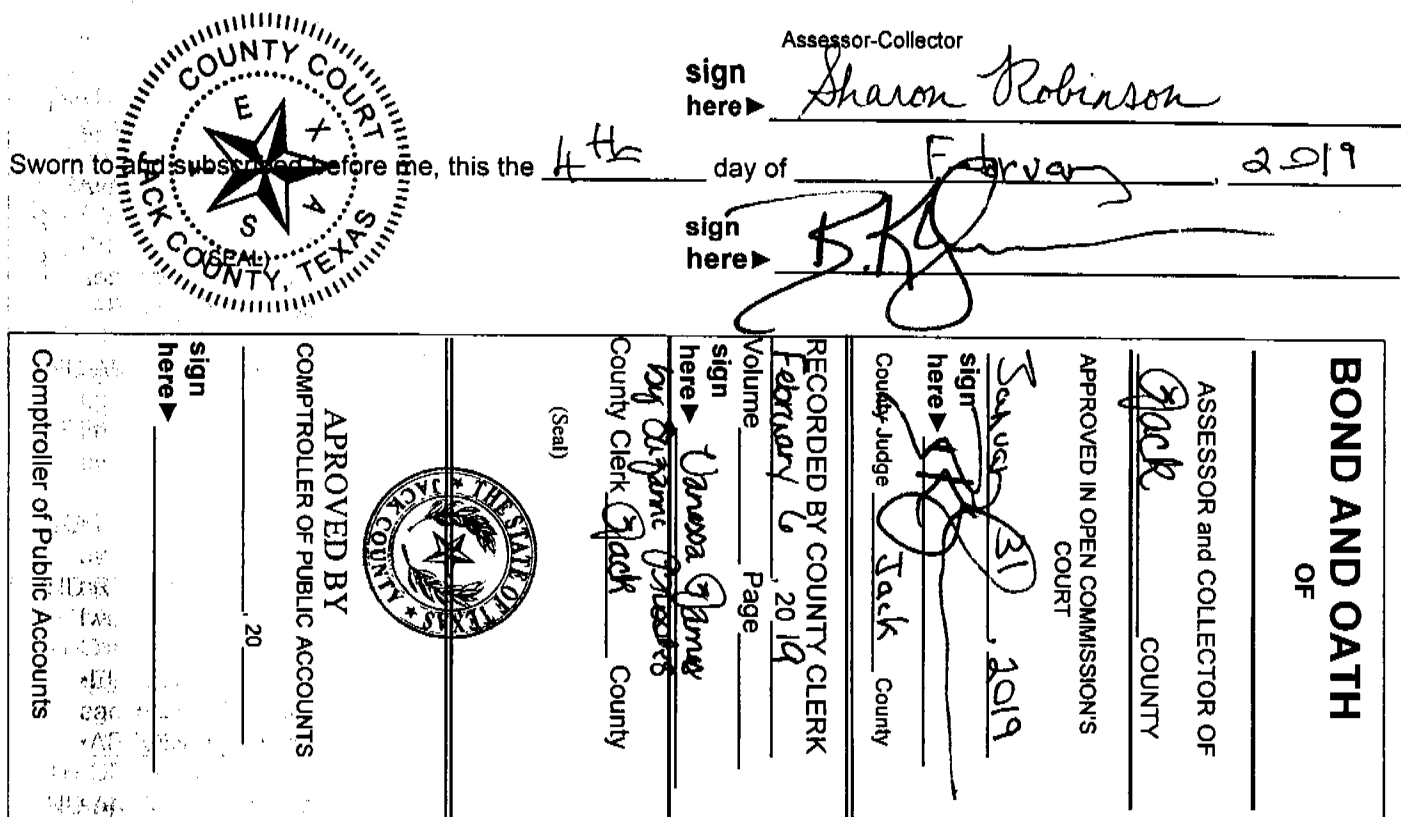 COUNTY COURT
JACK COUNTY, TEXAS
T E X A S
(SEAL)
Assessor-Collector
sign
here▶ Sharon Robinson
Sworn to and subscribed before me, this the 4th day of February, 2019
sign
here▶
BOND AND OATH
OF
ASSESSOR and COLLECTOR OF
Jack COUNTY
APPROVED IN OPEN COMMISSION'S
COURT
January 31, 2019
sign
here▶
County Judge Jack County
RECORDED BY COUNTY CLERK
February 6, 2019
Volume Page
sign
here▶ Vanessa James
by
County Clerk Jack County
(Seal)
THE STATE OF TEXAS
JACK COUNTY
APROVED BY
COMPTROLLER OF PUBLIC ACCOUNTS
, 20
sign
here▶
Comptroller of Public Accounts